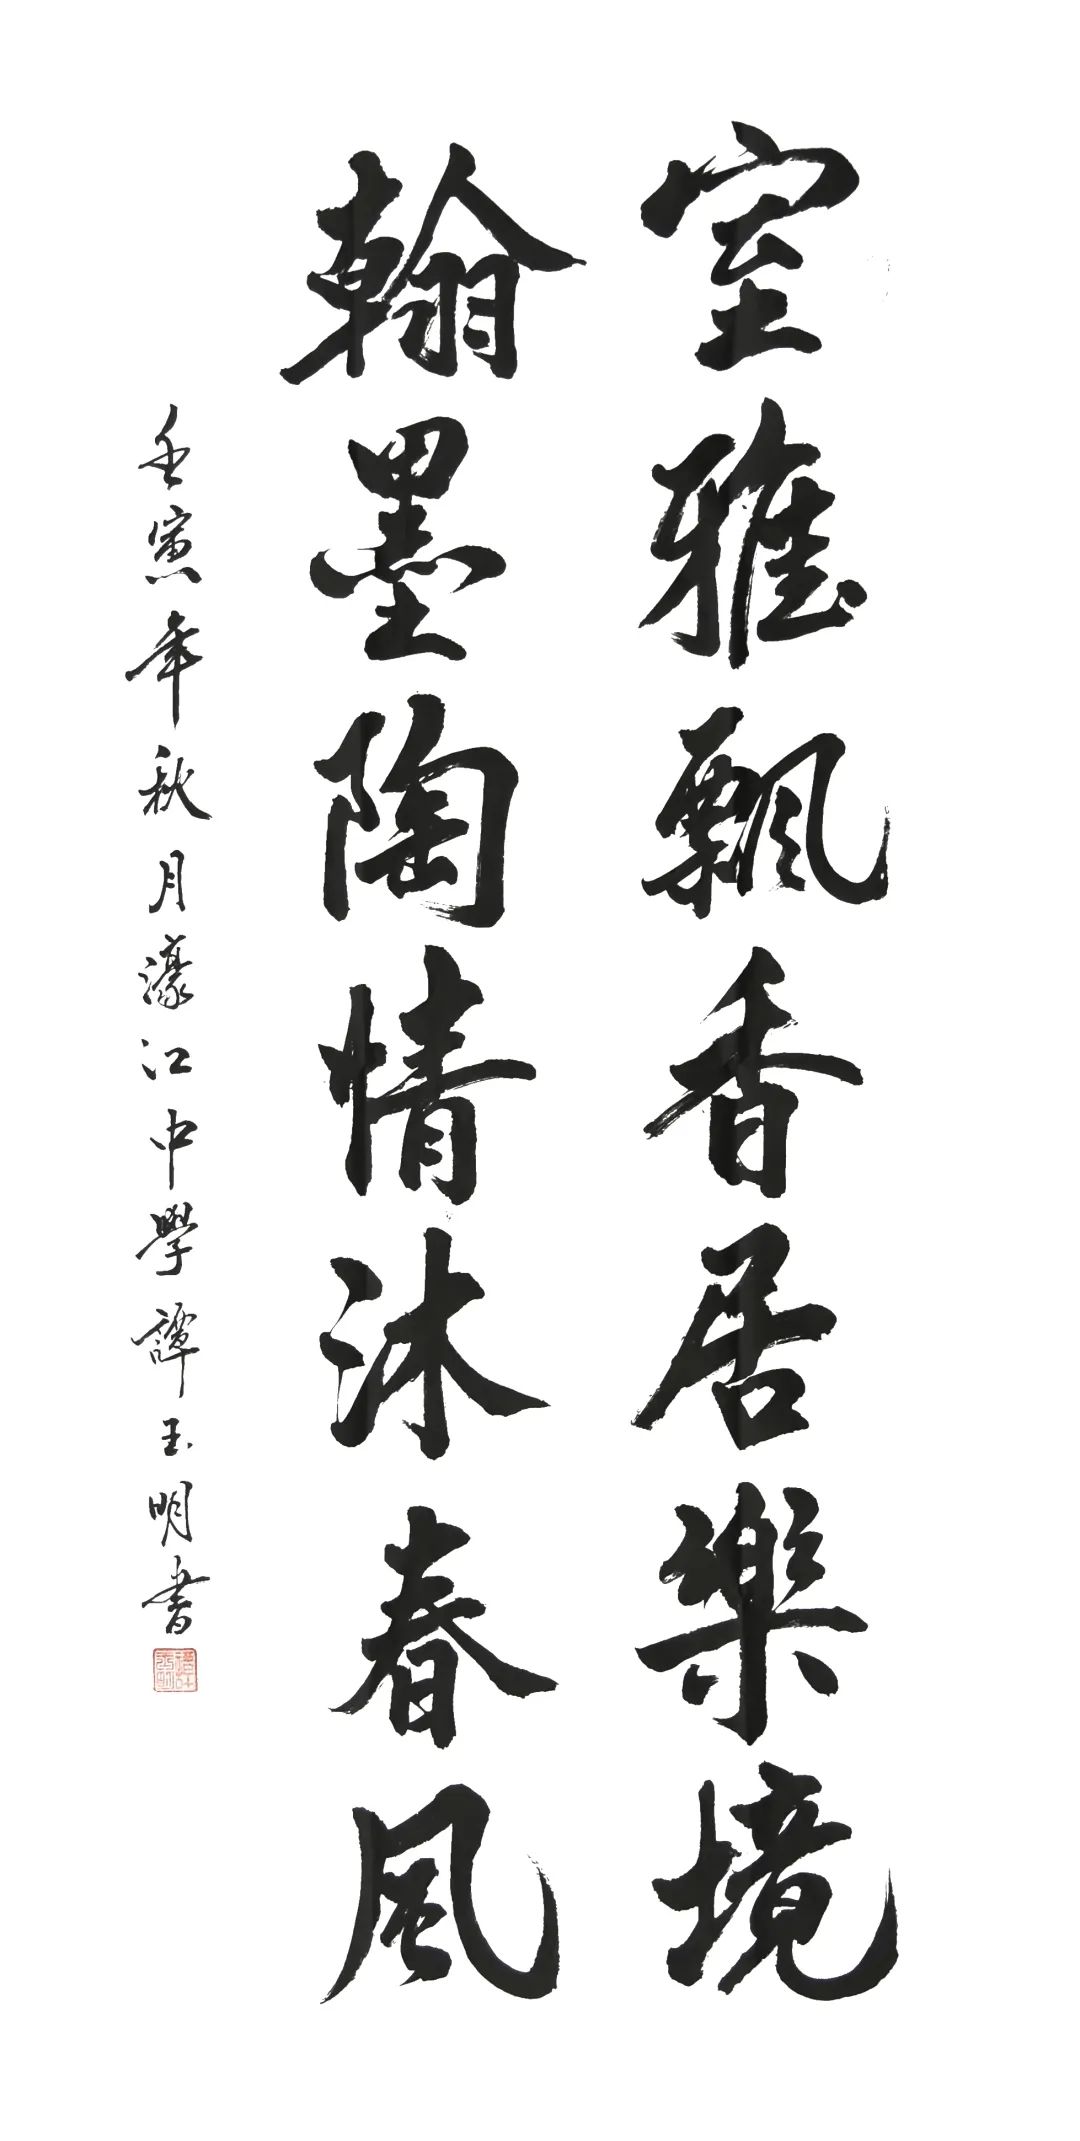 室雅飄香居樂境
翰墨陶情沐春風
壬寅年秋月濠江中學譚玉明書